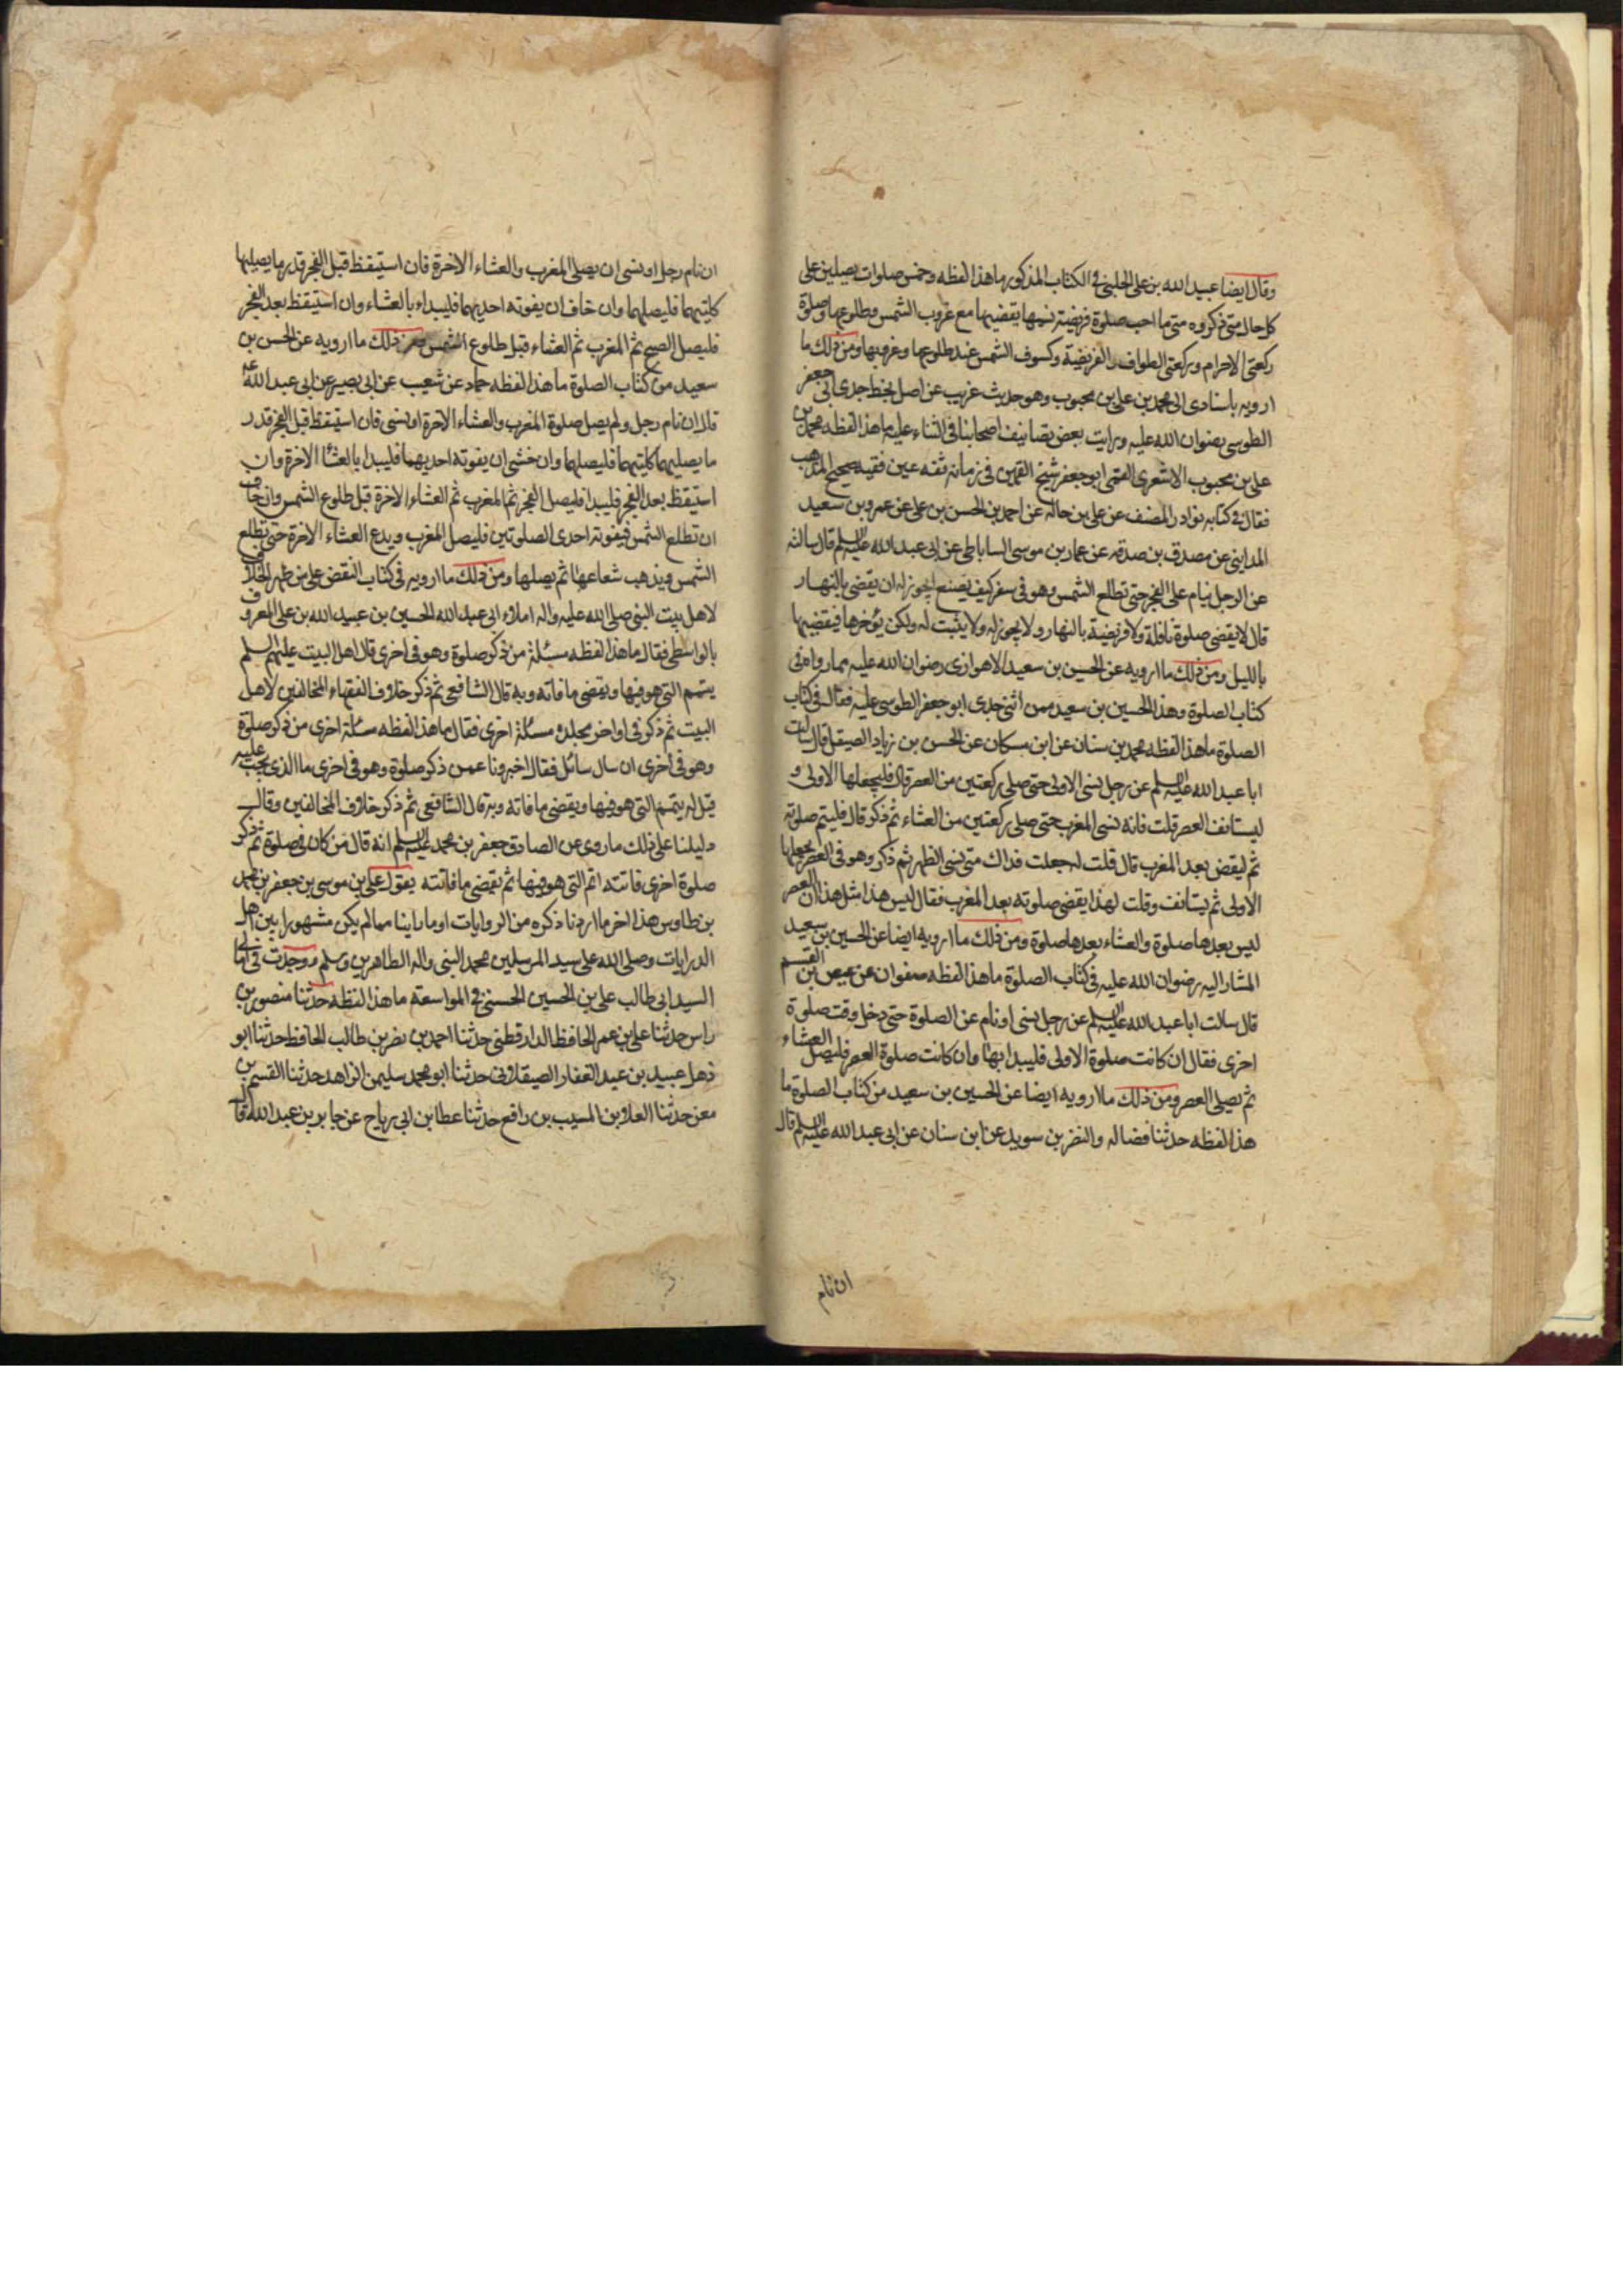 وقال ايضا عبيد الله بن على الحلبى فى الكتاب المذكور ما هذا لفظه وخمس صلوات يصلين على
كل حال متى ذكره ومتى ما احب صلوة فريضة نسيها يقضيها مع غروب الشمس وطلوعها وصلوة
ركعتى الاحرام وركعتى الطواف والفريضة وكسوف الشمس عند طلوعها وغروبها ومن ذلك ما
ارويه باسنادى الى محمد بن على بن محبوب وهو حديث غريب عن اصل بخط جدى ابى جعفر
الطوسى رضوان الله عليه ورايت بعض تصانيف اصحابنا فى الثناء عليه ما هذا لفظه محمد بن
على بن محبوب الاشعرى القمى ابو جعفر شيخ القميين فى زمانه ثقه عين فقيه صحيح المذهب
فقال فى كتابه نوادر المصنف عن على بن خالد عن احمد بن الحسن بن على عن عمرو بن سعيد
المداينى عن مصدق بن صدقه عن عمار بن موسى الساباطى عن ابى عبد الله عليه السلم قال سالته
عن الرجل ينام عن الفجر حتى تطلع الشمس وهو فى سفر كيف يصنع ايجوز له ان يقضى بالنهار
قال لا يقضى صلوة نافلة ولا فريضة بالنهار ولا يجوز له ولا يثبت له ولكن يؤخرها فيقضيها
بالليل ومن ذلك ما ارويه عن الحسين بن سعيد الاهوازى رضوان الله عليه مما رواه فى
كتاب الصلوة وهذا الحسين بن سعيد ممن اثنى جدى ابو جعفر الطوسى عليه فقال فى كتاب
الصلوة ما هذا لفظه محمد بن سنان عن ابن مسكان عن الحسن بن زياد الصيقل قال سالت
ابا عبد الله عليه السلم عن رجل نسى الاولى حتى صلى ركعتين من العصر قال فليجعلها الاولى و
ليستانف العصر قلت فانه نسى المغرب حتى صلى ركعتين من العشاء ثم ذكر قال فليتم صلوته
ثم ليقض بعد المغرب قال قلت له جعلت فداك متى نسى الظهر ثم ذكر وهو فى العصر يجعلها
الاولى ثم يستانف وقلت لهذا يقضى صلوته بعد المغرب فقال ليس هذا مثل هذا ان العصر
ليس بعدها صلوة والعشاء بعدها صلوة ومن ذلك ما ارويه ايضا عن الحسين بن سعيد
المشار اليه رضوان الله عليه فى كتاب الصلوة ما هذا لفظه صفوان عن عيص بن القسم
قال سالت ابا عبد الله عليه السلم عن رجل نسى او نام عن الصلوة حتى دخل وقت صلوة
اخرى فقال ان كانت صلوة الاولى فليبدا بها وان كانت صلوة العصر فليصل العشاء
ثم يصلى العصر ومن ذلك ما ارويه ايضا عن الحسين بن سعيد من كتاب الصلوة ما
هذا لفظه حدثنا فضاله والنضر بن سويد عن ابن سنان عن ابى عبد الله عليه السلم قال
ان نام
ان نام رجل او نسى ان يصلى المغرب والعشاء الاخرة فان استيقظ قبل الفجر قدر ما يصليها
كليتهما فليصلهما وان خاف ان يفوته احديهما فليبداء بالعشاء وان استيقظ بعد الفجر
فليصل الصبح ثم المغرب ثم العشاء قبل طلوع الشمس ومن ذلك ما ارويه عن الحسن بن
سعيد من كتاب الصلوة ما هذا لفظه حماد عن شعيب عن ابى بصير عن ابى عبد الله ع
قال ان نام رجل ولم يصل صلوة المغرب والعشاء الاخرة او نسى فان استيقظ قبل الفجر قدر
ما يصليهما كليتهما فليصلهما وان خشى ان يفوته احديهما فليبدا بالعشا الاخرة وان
استيقظ بعد الفجر فليبدا فليصل الفجر ثم المغرب ثم العشاء الاخرة قبل طلوع الشمس وان خاف
ان تطلع الشمس فيفوته احدى الصلوتين فليصل المغرب ويدع العشاء الاخرة حتى تطلع
الشمس ويذهب شعاعها ثم يصلها ومن ذلك ما ارويه فى كتاب النقض على من ظهر الخلاف
لاهل بيت النبى صلى الله عليه واله املاء ابى عبد الله الحسين بن عبيد الله بن على المعروف
بالواسطى فقال ما هذا لفظه مسئلة من ذكر صلوة وهو فى اخرى قال اهل البيت عليهم السلم
يتمم التى هو فيها ويقضى ما فاته وبه قال الشافعى ثم ذكر خلاف الفقهاء المخالفين لاهل
البيت ثم ذكر فى اواخر مجلده مسئلة اخرى فقال ما هذا لفظه مسئلة اخرى من ذكر صلوة
وهو فى اخرى ان سال سائل فقال اخبرونا عمن ذكر صلوة وهو فى اخرى ما الذى يجب عليه
قيل له يتمم التى هو فيها ويقضى ما فاته وبه قال الشافعى ثم ذكر خلاف المخالفين وقال
دليلنا على ذلك ما روى عن الصادق جعفر بن محمد عليه السلم انه قال من كان فى صلوة ثم ذكر
صلوة اخرى فاتته اتم التى هو فيها ثم يقضى ما فاتته يقول على بن موسى بن جعفر بن محمد
بن طاوس هذا اخر ما اردنا ذكره من الروايات او ما راينا مما لم يكن مشهورا بين اهل
الدرايات وصلى الله على سيد المرسلين محمد النبى واله الطاهرين وسلم ووجدت فى امالى
السيد ابى طالب على بن الحسين الحسنى فى المواسعة ما هذا لفظه حدثنا منصور بن
راس حدثنا على بن عمر الحافظ الدارقطنى حدثنا احمد بن نصر بن طالب الحافظ حدثنا ابو
ذهل عبيد بن عبد الغفار الصيقلانى حدثنا ابو محمد سليمن الزاهد حدثنا القسم بن
معن حدثنا العلا بن المسيب بن رافع حدثنا عطا بن ابى رباح عن جابر بن عبد الله قال